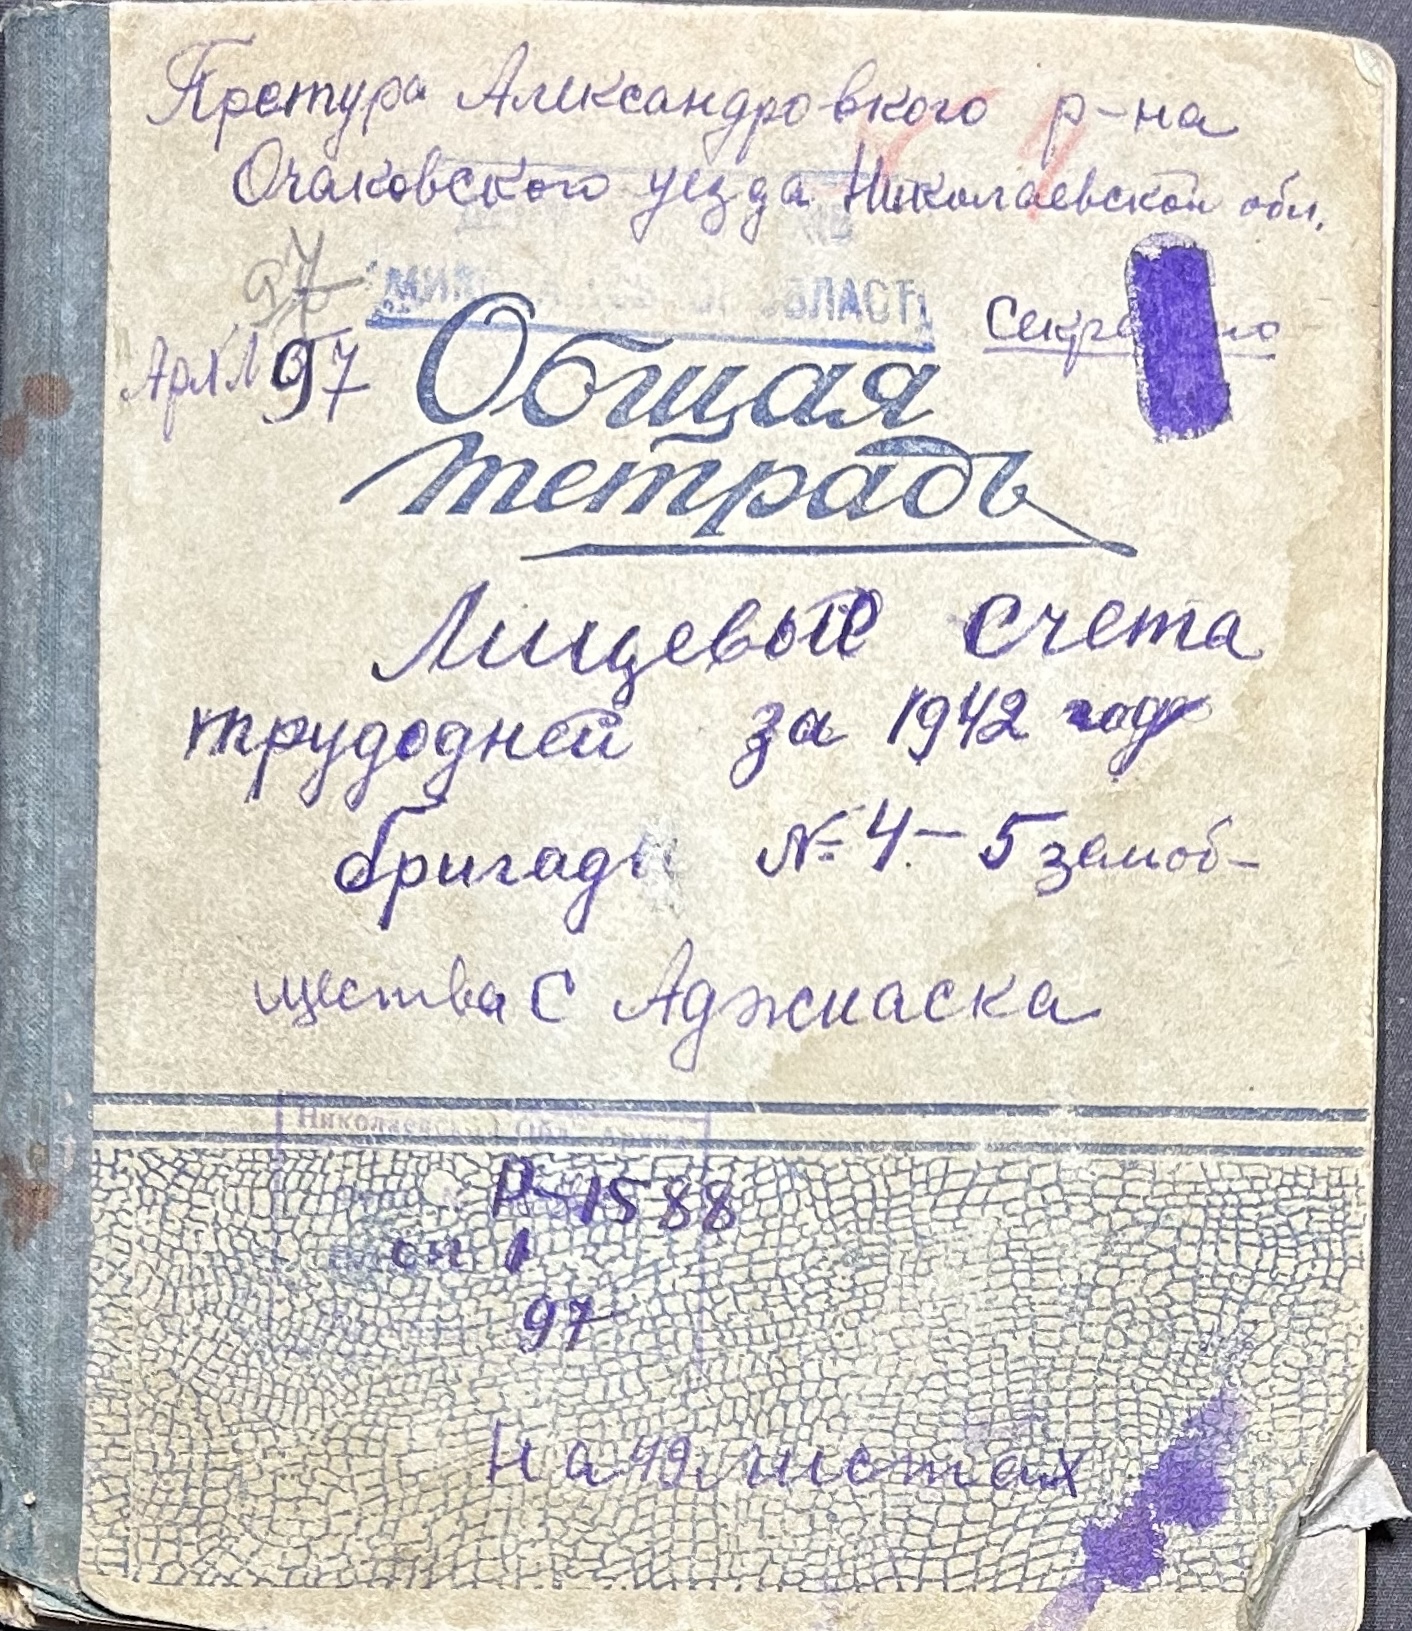 Претура Александровкого р-на
Очаковского уезда Николаевской обл.
97
Арх №97
Секретно
Общая
тетрадь
Лицевые счета
трудодней за 1942 год
бригады № 4-5 земоб-
щества с Аджиаска
Николаевский Обл. Архив
Р-1588
оп 1
97
На 49 листах